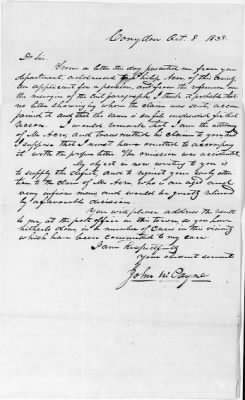 Corydon Oct. 8. 1838.
Dr Sir
From a letter this day presented me, from your
department, addressed Philip Acre of this County
an applicant for a pension, and from the reference on
the margin of the last paragraph, I think it probable that
no letter showing by whom the claim was sent, accom
panied it and that the same is as yet undecided for that
reason. I would remark that I am the attorney
of Mr Acre, and transmitted his claim to you and
I suppose that I must have omitted to accompany
it with the proper letter. The omission was accidental
My object in now writing to you is
to supply the defect, and to request your early atten
tion to the claim of Mr Acre, who is an aged and
very infirm man and would be greatly relieved
by a favorable decision.
You will please address the result
to me, at the post office in this town, as you have
hitherto done in a number of Cases in this vicinity
which have been committed to my care.
I am respectfully
Your obedient servant
John W Payne